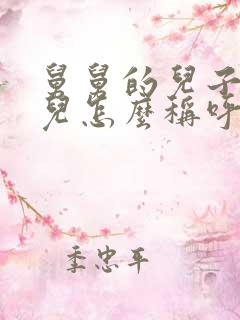 舅舅的兒子
兒怎麼稱呼
季忠平